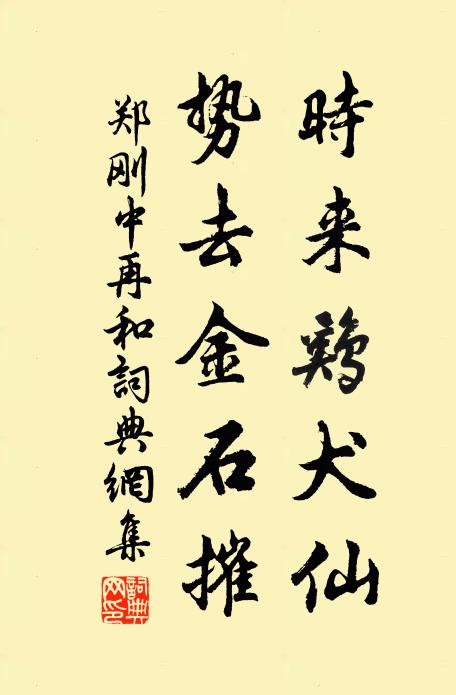 時来鷄犬仙
勢去金石摧
郑刚中再和詞典網集
詞典网印